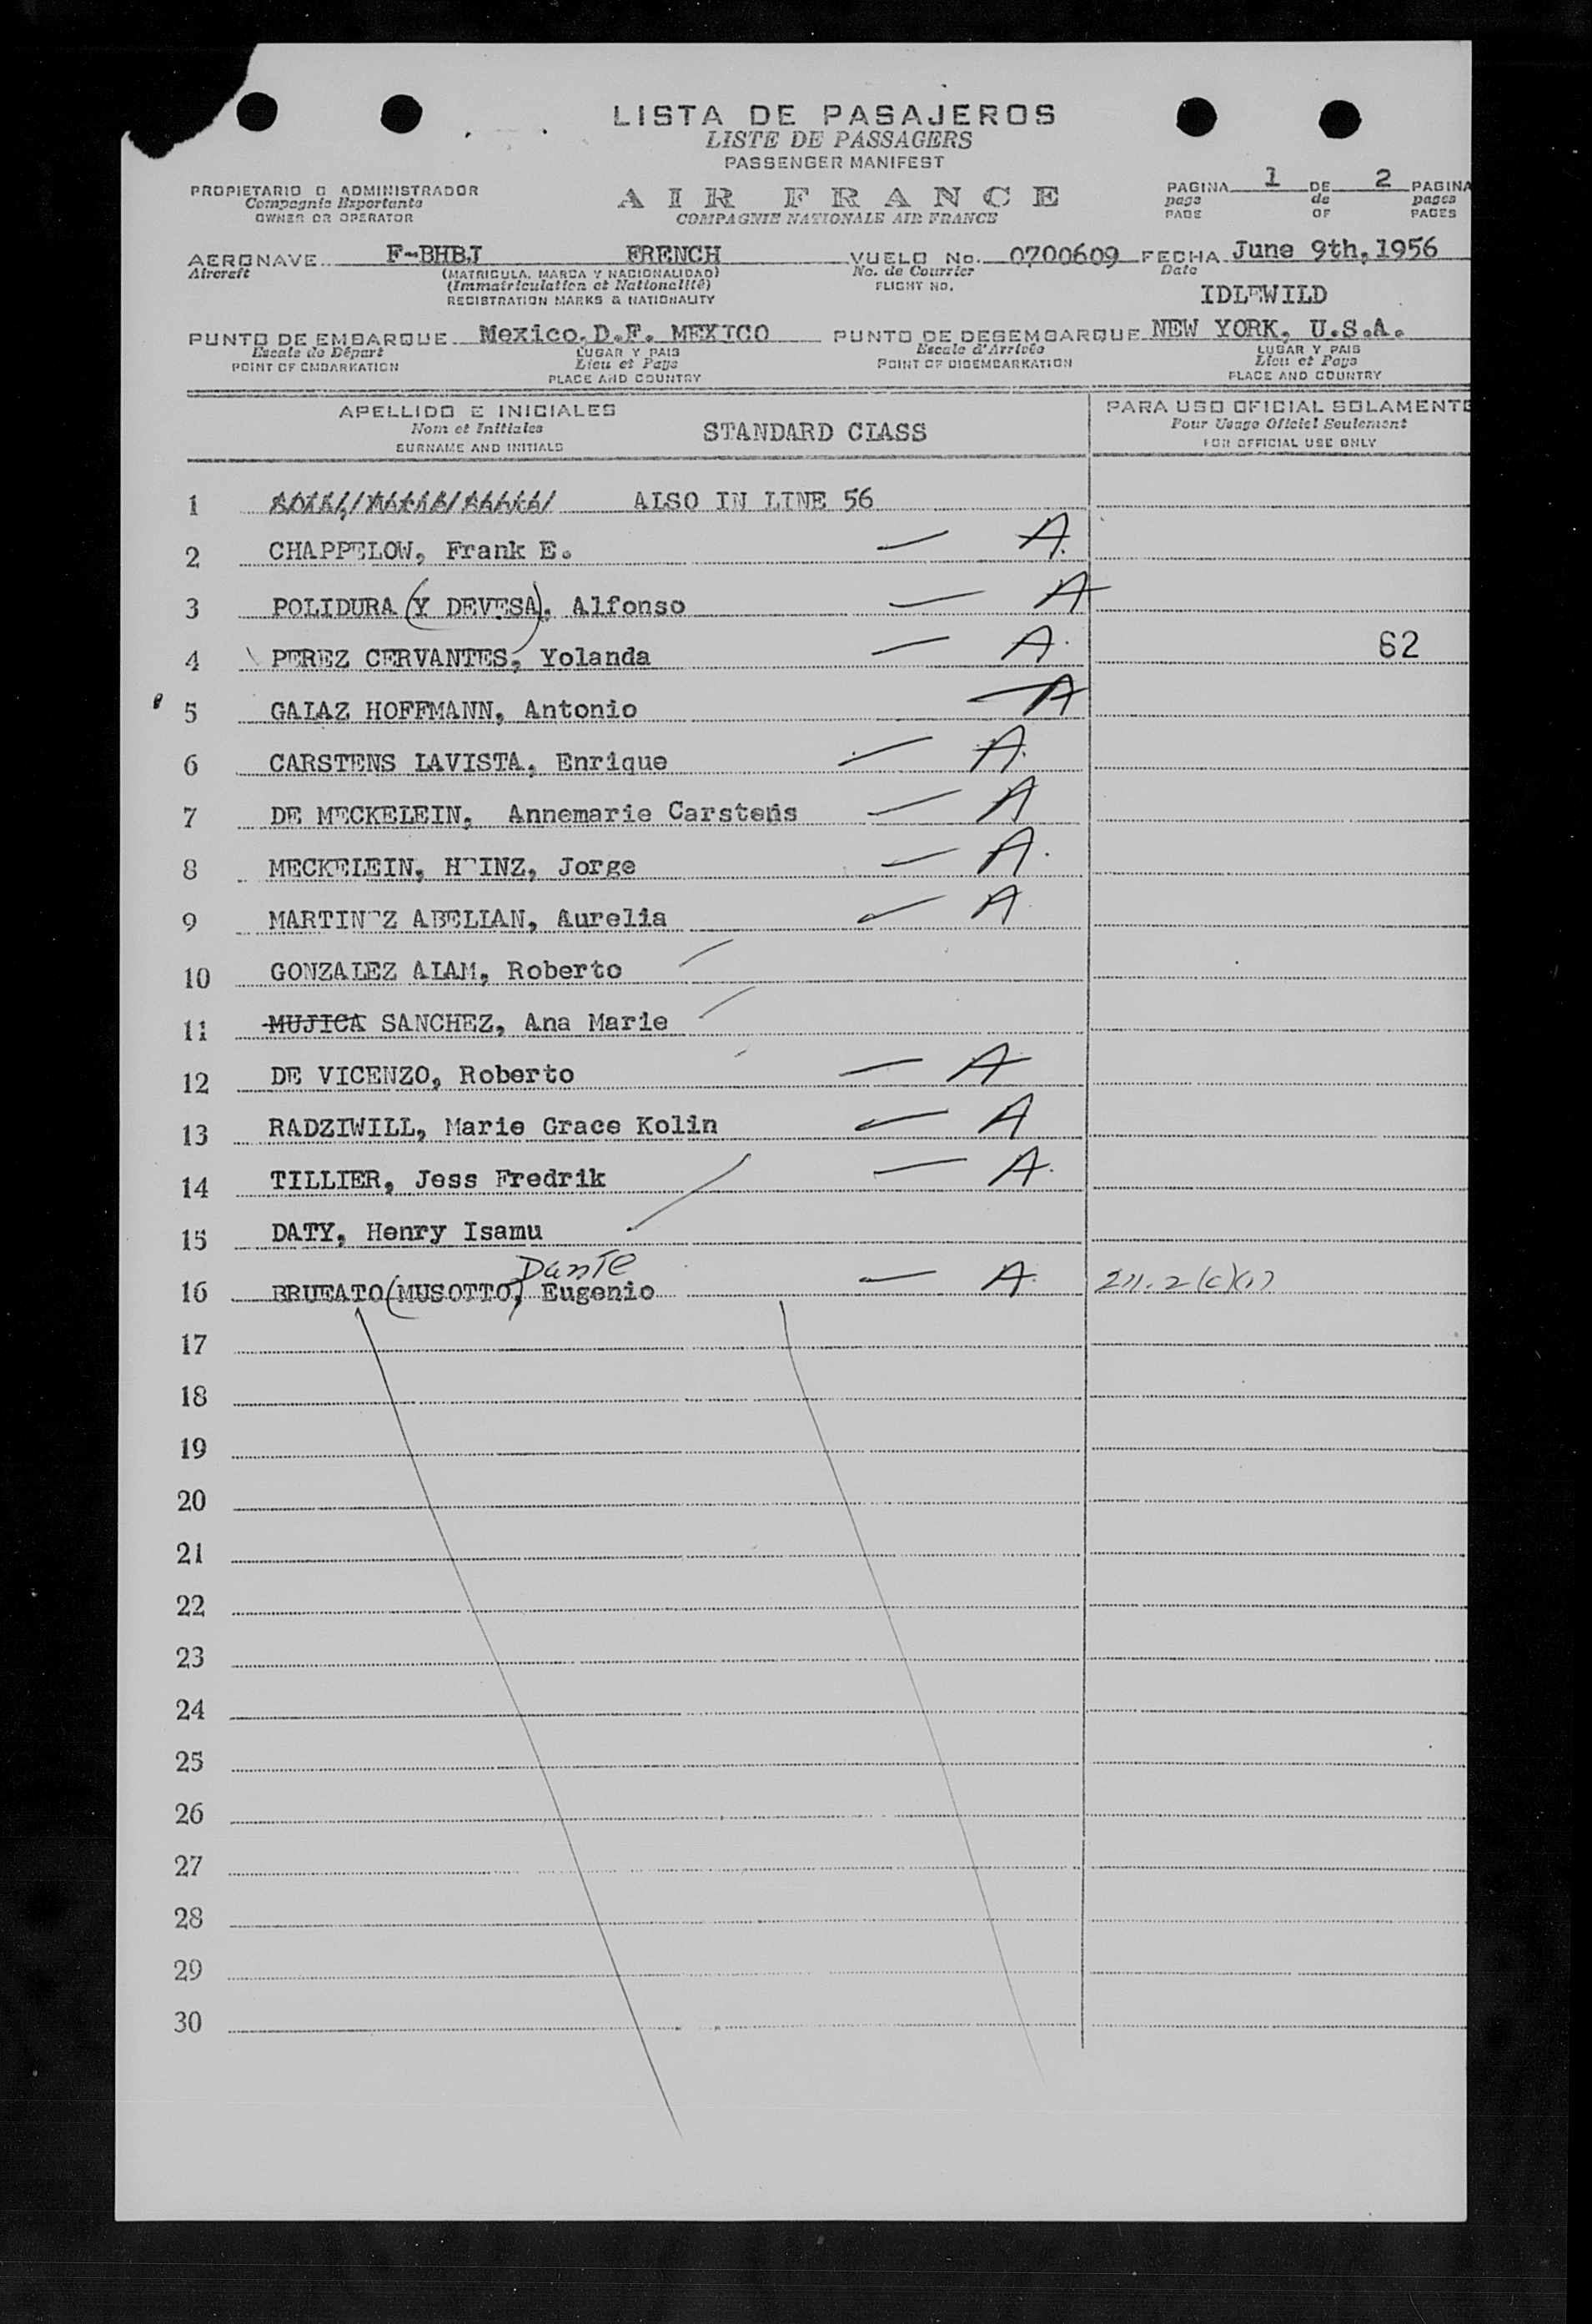 LISTA DE PASAJEROS
LISTE DE PASSAGERS
PASSENGER MANIFEST
PROPIETARIO O ADMINISTRADOR
Compagnie Exportante
OWNER OR OPERATOR
AIR FRANCE
COMPAGNIE NATIONALE AIR FRANCE
PAGINA 1 DE 2 PAGINA
page de pages
PAGE OF PAGES
AERONAVE F-BHBJ FRENCH VUELO No. 0700609 FECHA June 9th, 1956
Aircraft (MATRICULA, MARCA Y NACIONALIDAD) No. de Courrier Date
(Immatriculation et Nationalité) FLIGHT NO.
REGISTRATION MARKS & NATIONALITY
IDLEWILD
PUNTO DE EMBARQUE Mexico, D.F. MEXICO PUNTO DE DESEMBARQUE NEW YORK, U.S.A.
Escale de Départ LUGAR Y PAIS Escale d'Arrivée LUGAR Y PAIS
POINT OF EMBARKATION Lieu et Pays POINT OF DISEMBARKATION Lieu et Pays
PLACE AND COUNTRY PLACE AND COUNTRY
APELLIDO E INICIALES PARA USO OFICIAL SOLAMENTE
Nom et Initiales STANDARD CLASS Pour Usage Officiel Seulement
SURNAME AND INITIALS FOR OFFICIAL USE ONLY
1 ALSO IN LINE 56
2 CHAPPELOW, Frank E. — A.
3 POLIDURA (Y DEVESA), Alfonso — A
4 PEREZ CERVANTES, Yolanda — A. 62
5 GALAZ HOFFMANN, Antonio — A
6 CARSTENS LAVISTA, Enrique — A.
7 DE MECKELEIN, Annemarie Carstens — A
8 MECKELEIN, HEINZ, Jorge — A.
9 MARTINEZ ABELIAN, Aurelia — A
10 GONZALEZ ALAM, Roberto
11 MUJICA SANCHEZ, Ana Marie
12 DE VICENZO, Roberto — A
13 RADZIWILL, Marie Grace Kolin — A
14 TILLIER, Jess Fredrik — A.
15 DATY, Henry Isamu
Dante
16 BRUEATO (MUSOTTO), Eugenio — A. 211.2(c)(1)
17
18
19
20
21
22
23
24
25
26
27
28
29
30